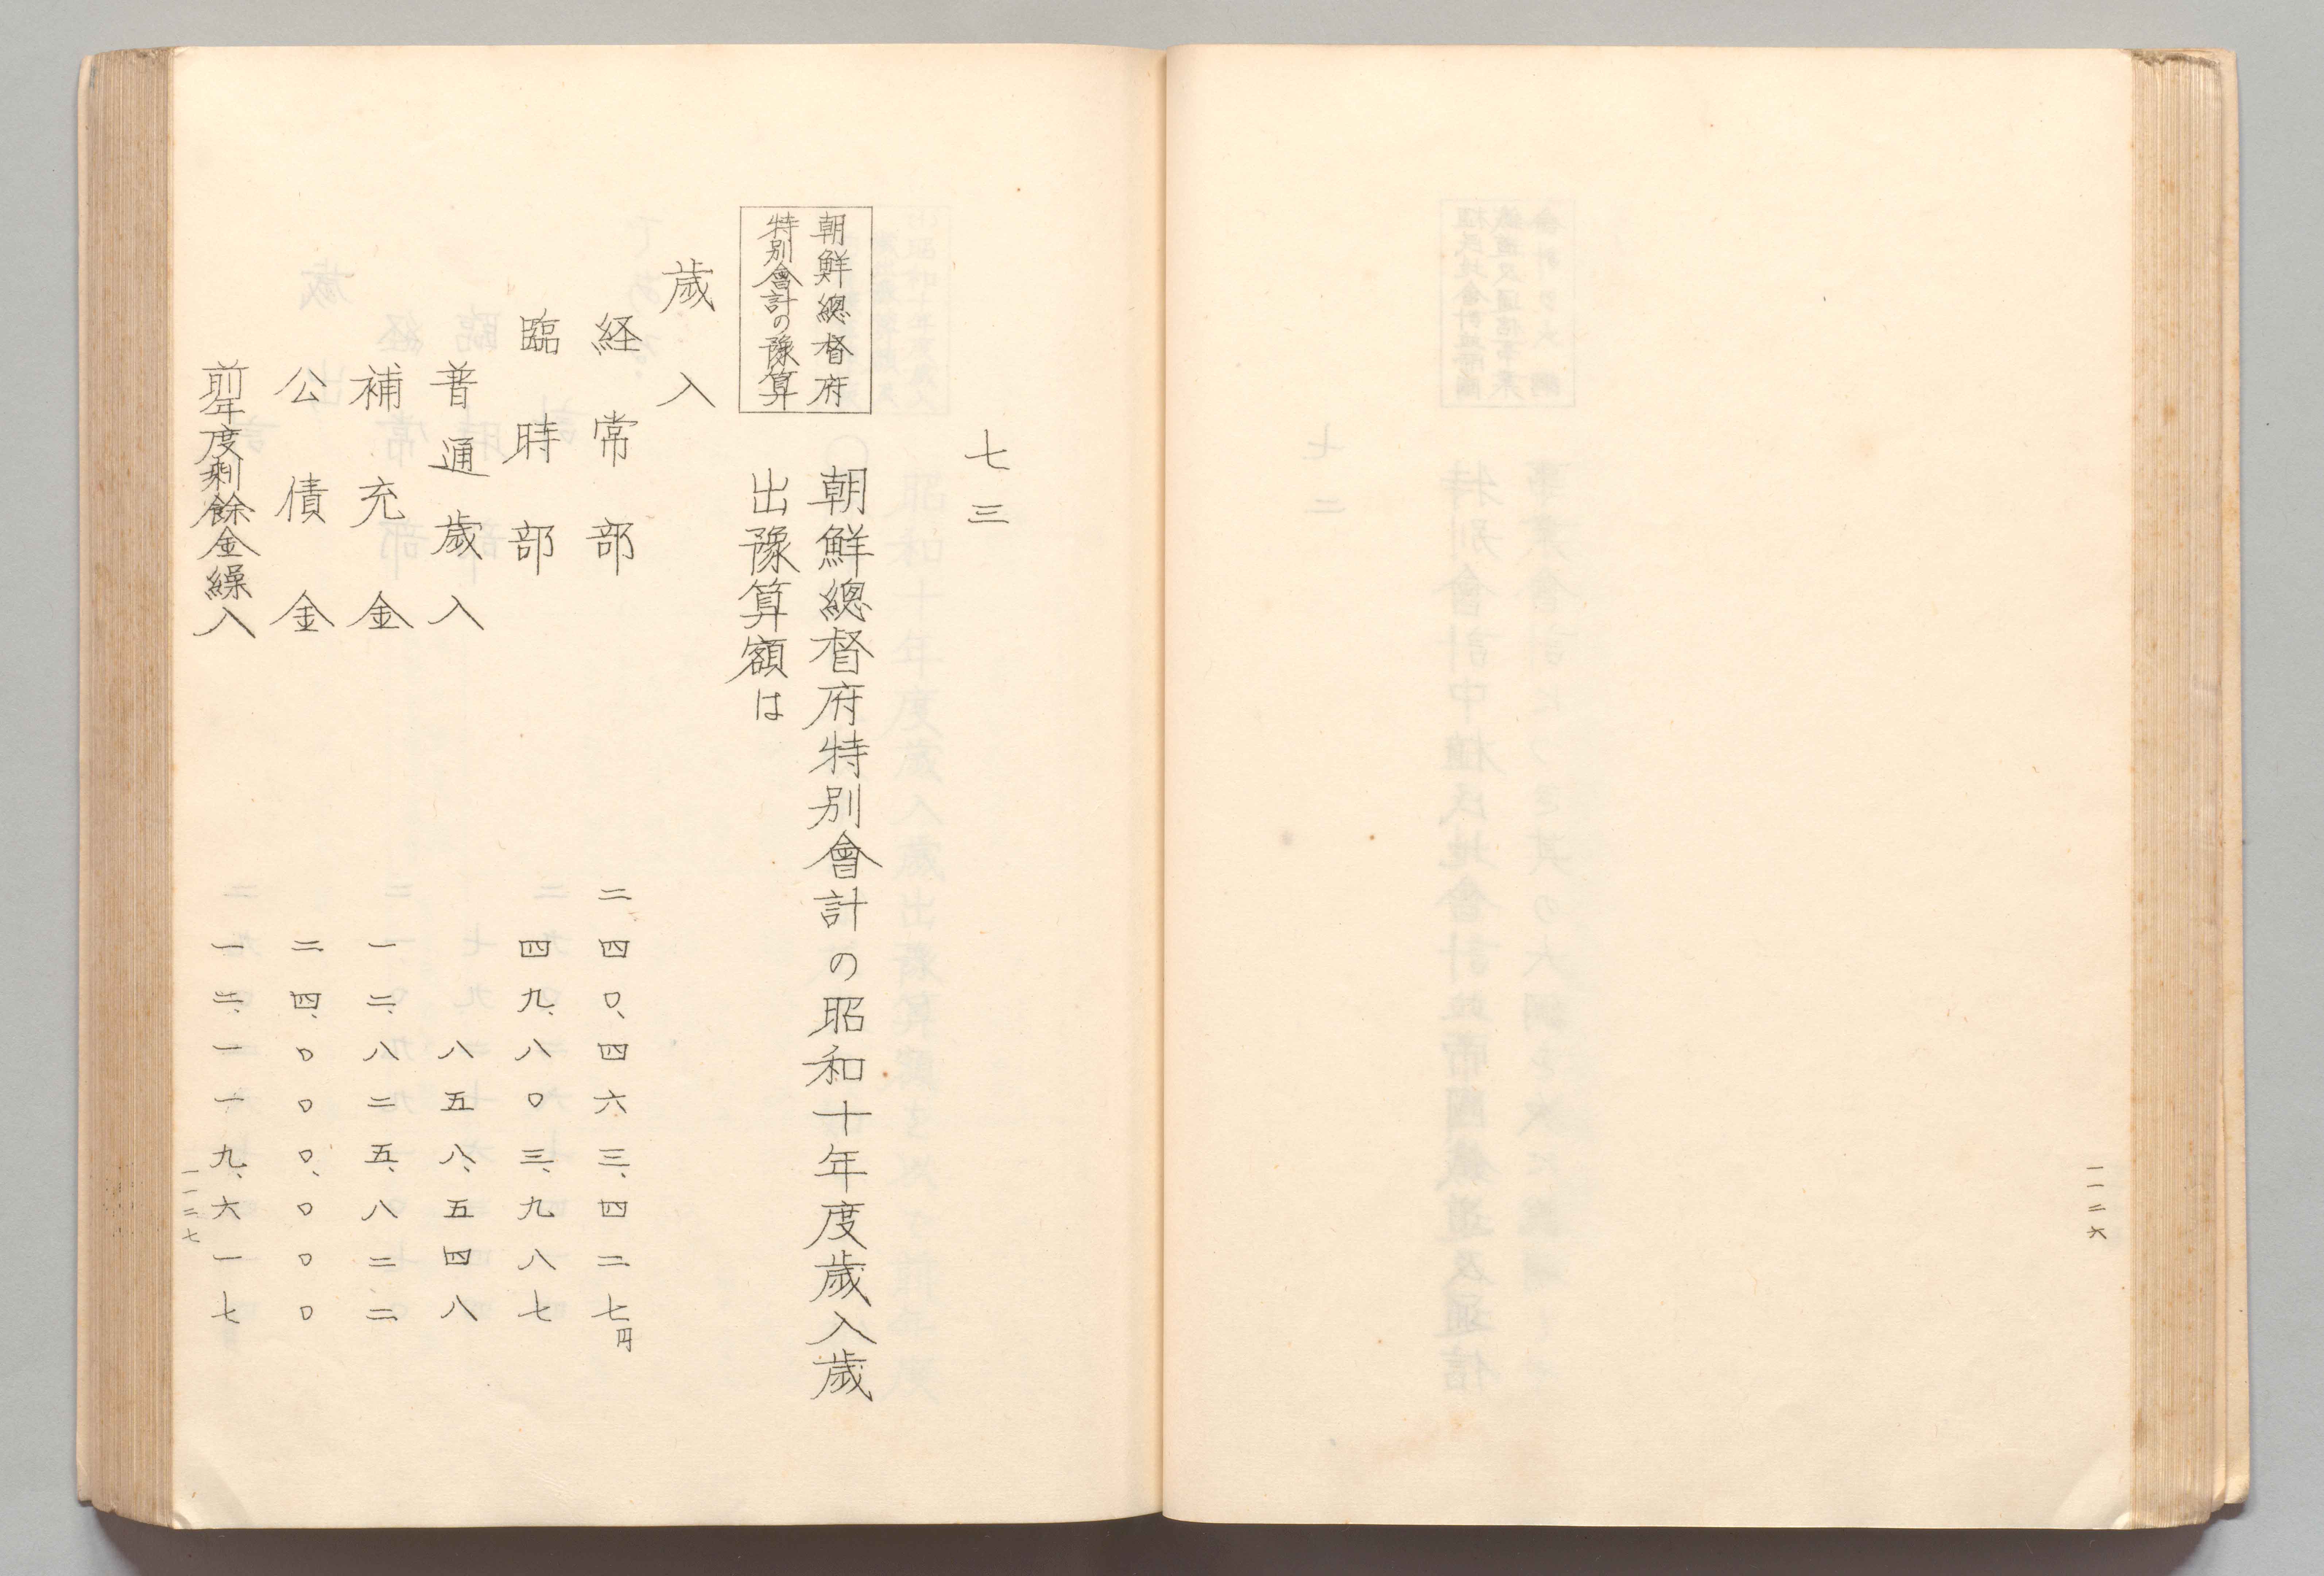 一一二六
七三
朝鮮總督府
特別會計の豫算
朝鮮總督府特別會計の昭和十年度歳入歳
出豫算額は
歳入
経常部 二四〇、四六三、四二七円
臨時部 四九、八〇三、九八七
普通歳入 八五八、五四八
補充金 一二、八二五、八二二
公債金 二四、〇〇〇、〇〇〇
前年度剰餘金繰入 一二、一一九、六一七
一一二七